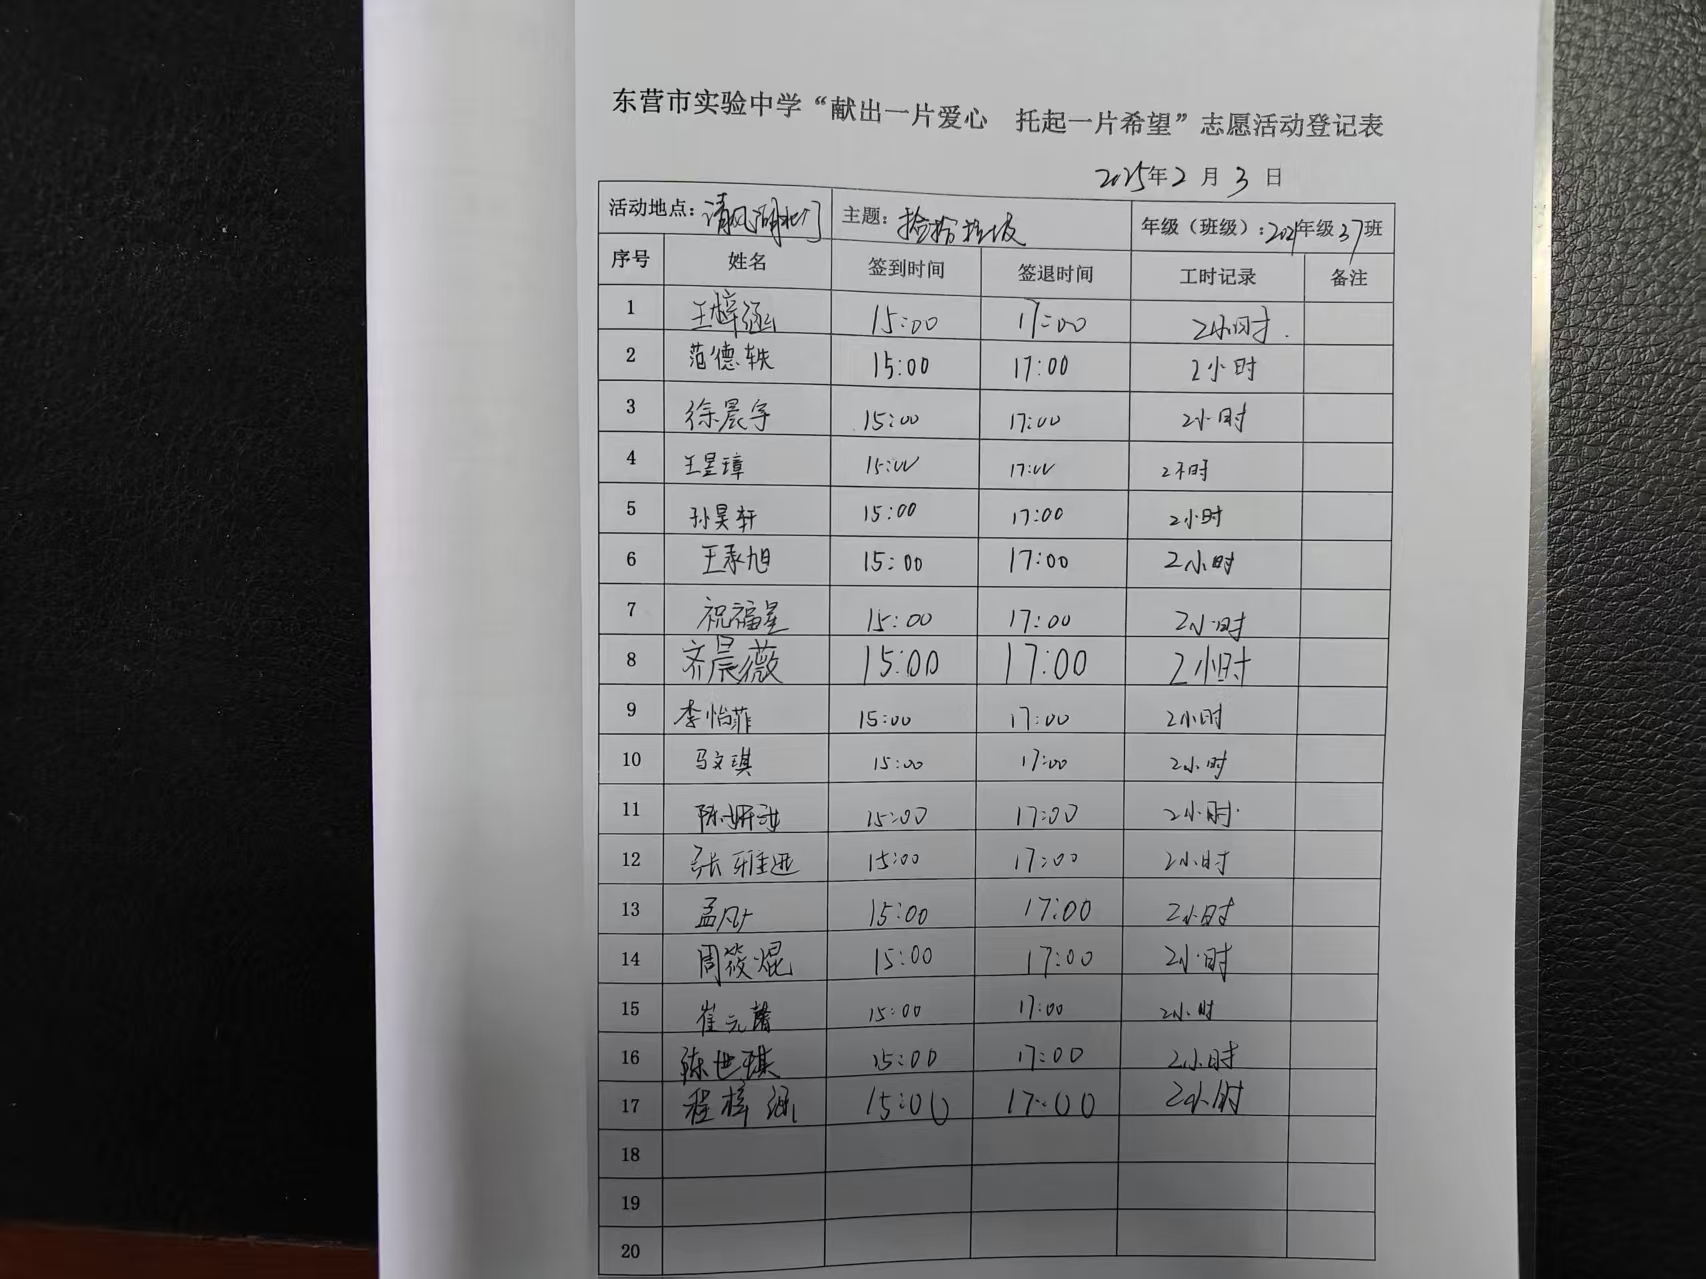 东营市实验中学“献出一片爱心 托起一片希望”志愿活动登记表
2025年2月3日
活动地点：清风湖北门 主题：捡拾垃圾 年级（班级）：2024年级37班
序号 姓名 签到时间 签退时间 工时记录 备注
1 王梓涵 15:00 17:00 2小时.
2 范德轶 15:00 17:00 2小时
3 徐晨宇 15:00 17:00 2小时
4 王昱璋 15:00 17:00 2小时
5 孙昊轩 15:00 17:00 2小时
6 王承旭 15:00 17:00 2小时
7 祝福星 15:00 17:00 2小时
8 齐晨薇 15:00 17:00 2小时
9 李怡菲 15:00 17:00 2小时
10 马文琪 15:00 17:00 2小时
11 15:00 17:00 2小时
12 张雅迅 15:00 17:00 2小时
13 孟凡 15:00 17:00 2小时
14 周筱焜 15:00 17:00 2小时
15 崔元馨 15:00 17:00 2小时
16 陈世琪 15:00 17:00 2小时
17 程梓涵 15:00 17:00 2小时
18
19
20